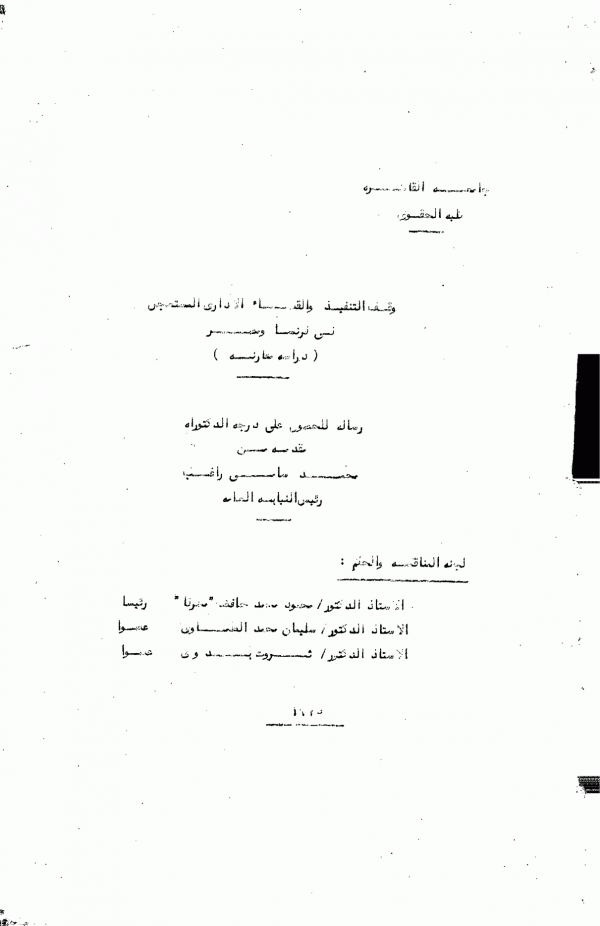 جامعـــه القاهـــره
كلية الحقوق
وقف التنفيـذ والقضـــاء الادارى المستعجل
فى فرنسا ومصـــر
( دراسه مقارنـه )
رساله للحصول على درجه الدكتوراه
مقدمه مـــن
محمـــد راغــب
رئيس النيابه العامه
لجنه المناقشه والحكم :
الاستاذ الدكتور/ محمود محمد حافظ "مشرفا" رئيسا
الاستاذ الدكتور/ سليمان محمد الطمــاوى عضـوا
الاستاذ الدكتور/ ثـــروت بــدوى عضـوا